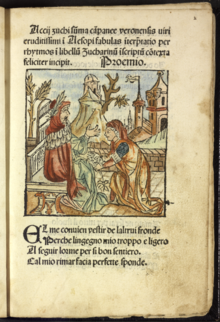 Accij zuchi summa cāpanee veronensis uiri
eruditissimi i Aesopi fabulas īterp̄tatio per
rhytmos i libellū Zucharinū īscriptū cōtexta
feliciter incipit. Proemio.
EL me conuien vestir de laltrui fronde
Perche lingegno mio troppo e ligero
A seguir lorme per si bon sentiero.
Cal mio rimar facia perfette sponde.